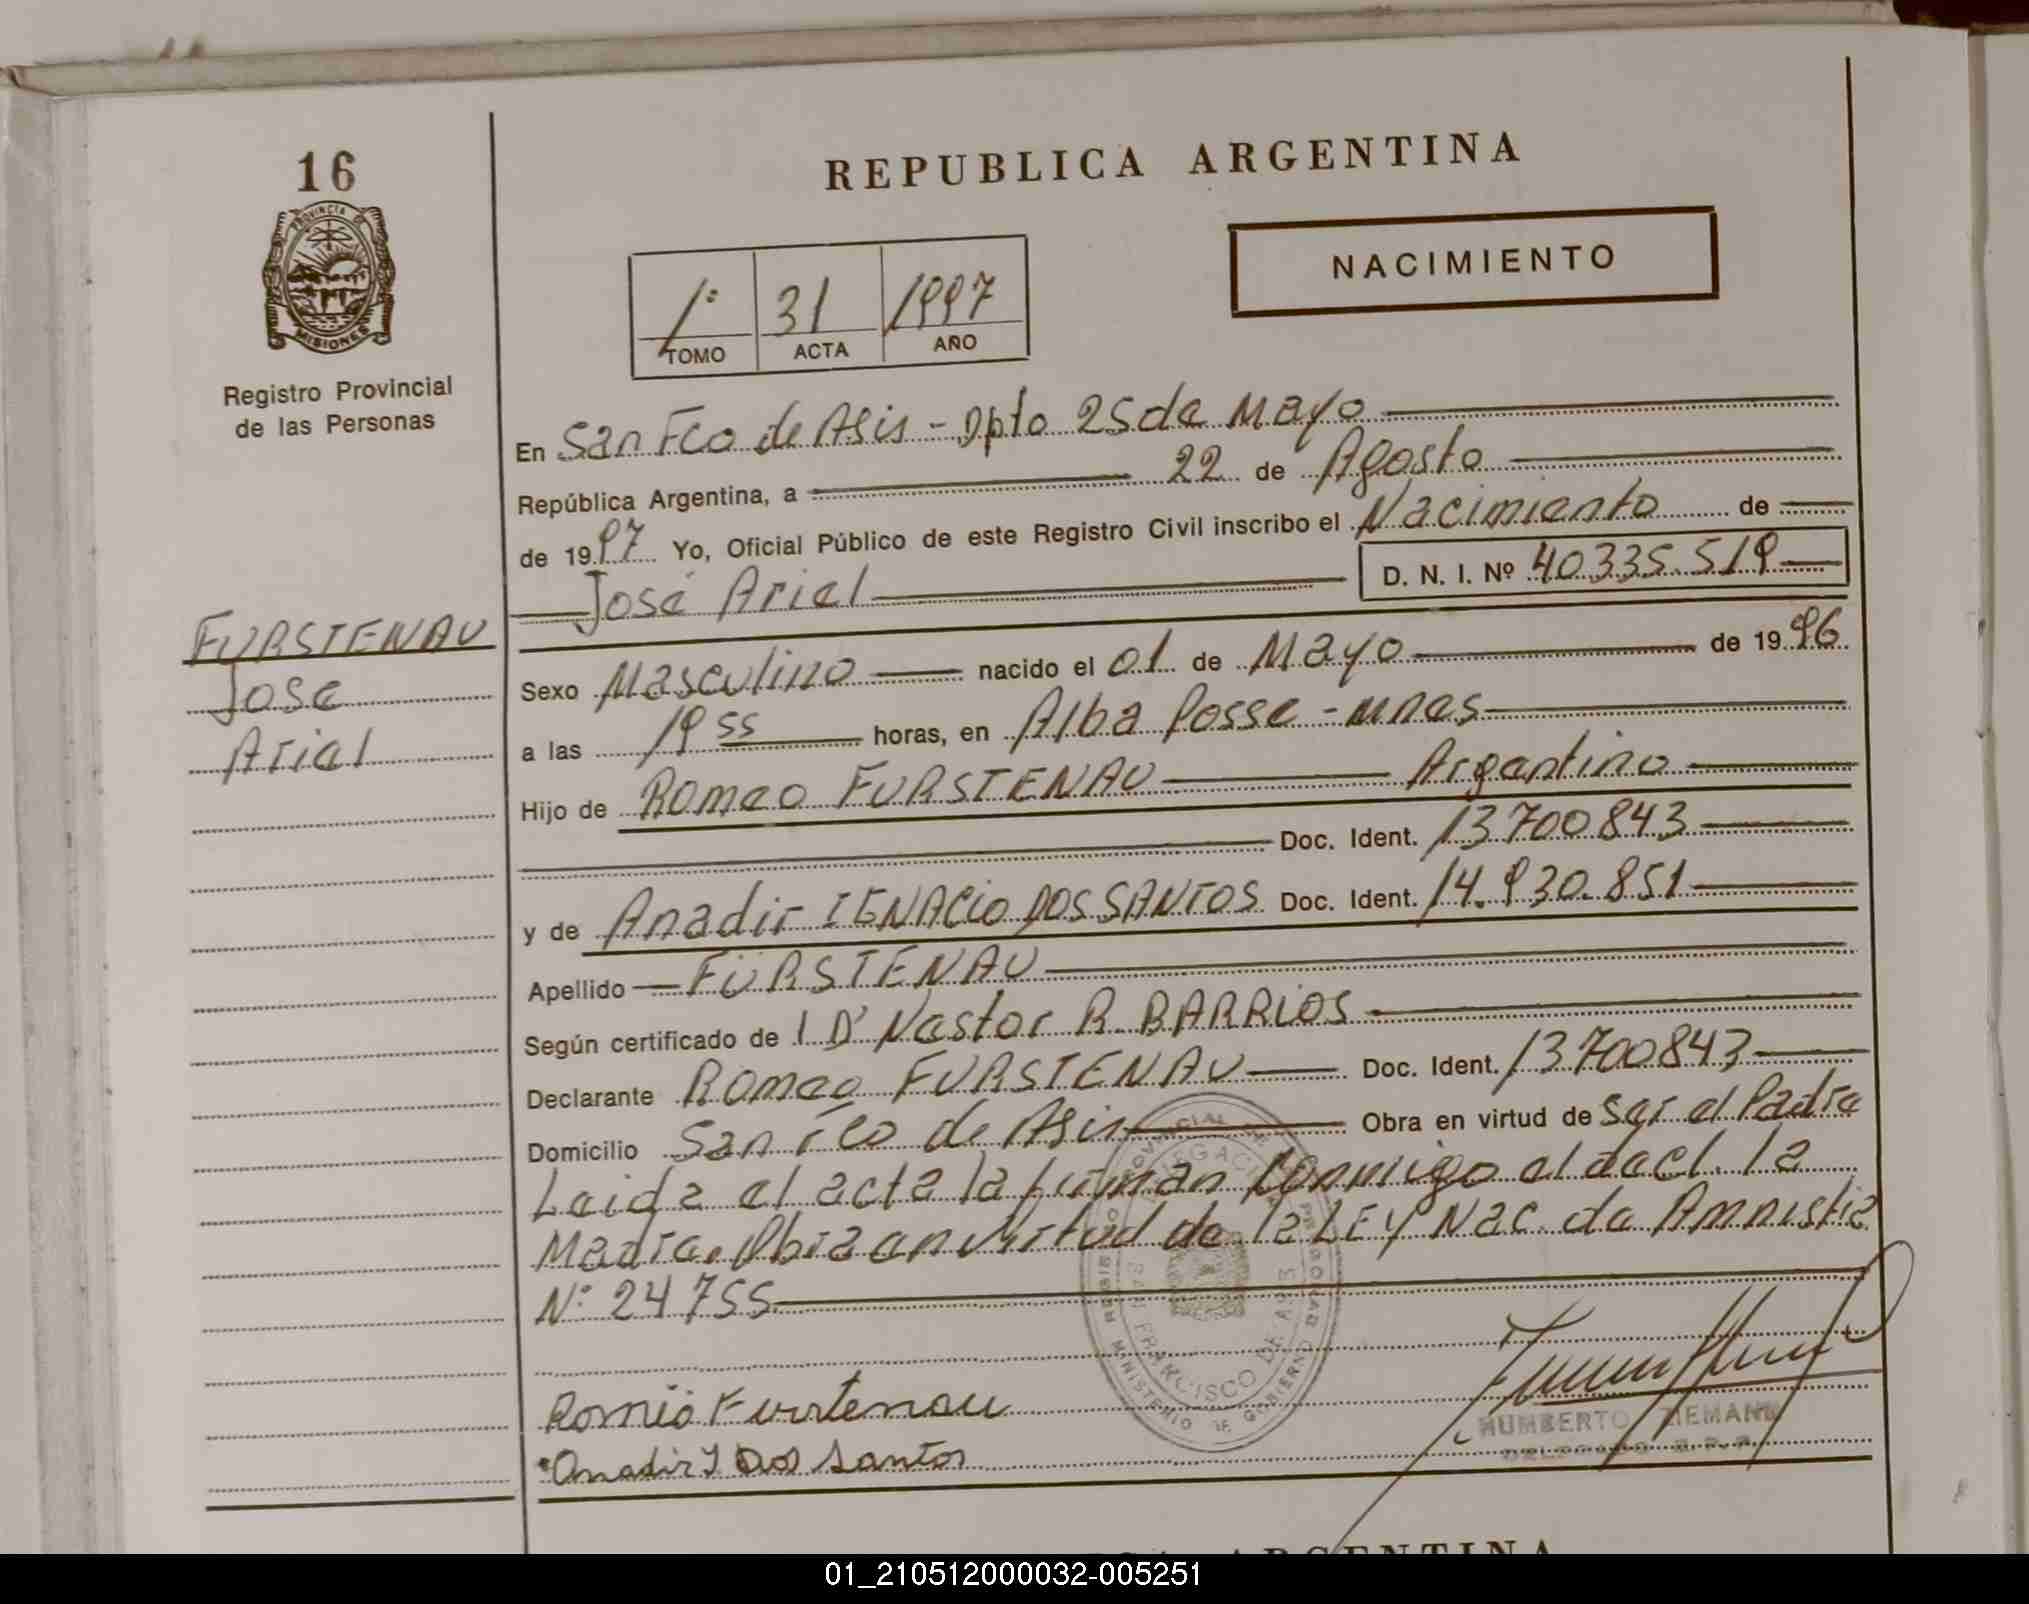 16
REPUBLICA ARGENTINA
PROVINCIA DE MISIONES
NACIMIENTO
1º 31 1997
TOMO ACTA AÑO
Registro Provincial
de las Personas
En San Fco de Asis - Dpto 25 de Mayo
República Argentina, a 22 de Agosto
de 1997 Yo, Oficial Público de este Registro Civil inscribo el Nacimiento de
José Ariel D. N. I. Nº 40335.519
FURSTENAU
Jose
Ariel
Sexo Masculino nacido el 01 de Mayo de 1996
a las 19 55 horas, en Alba Posse - Mnes
Hijo de Romeo FURSTENAU Argentino
Doc. Ident. 13700843
y de Anadir IGNACIO DOS SANTOS Doc. Ident. 14.930.851
Apellido FÜRSTENAU
Según certificado de l D' Nestor R. BARRIOS
Declarante Romeo FURSTENAU Doc. Ident. 13700843
Domicilio San Fco de Asis Obra en virtud de Ser el Padre
Leida el acta la firman Conmigo el decl. la
Madre. Obra en virtud de la LEY Nac. de Amnistia
Nº 24755
Romeo Furstenau
Anadir I Dos Santos
HUMBERTO ZIEMANN
DELEGADO R.P.P.
MINISTERIO DE GOBIERNO
FRANCISCO DE ASIS
ARGENTINA
01_210512000032-005251